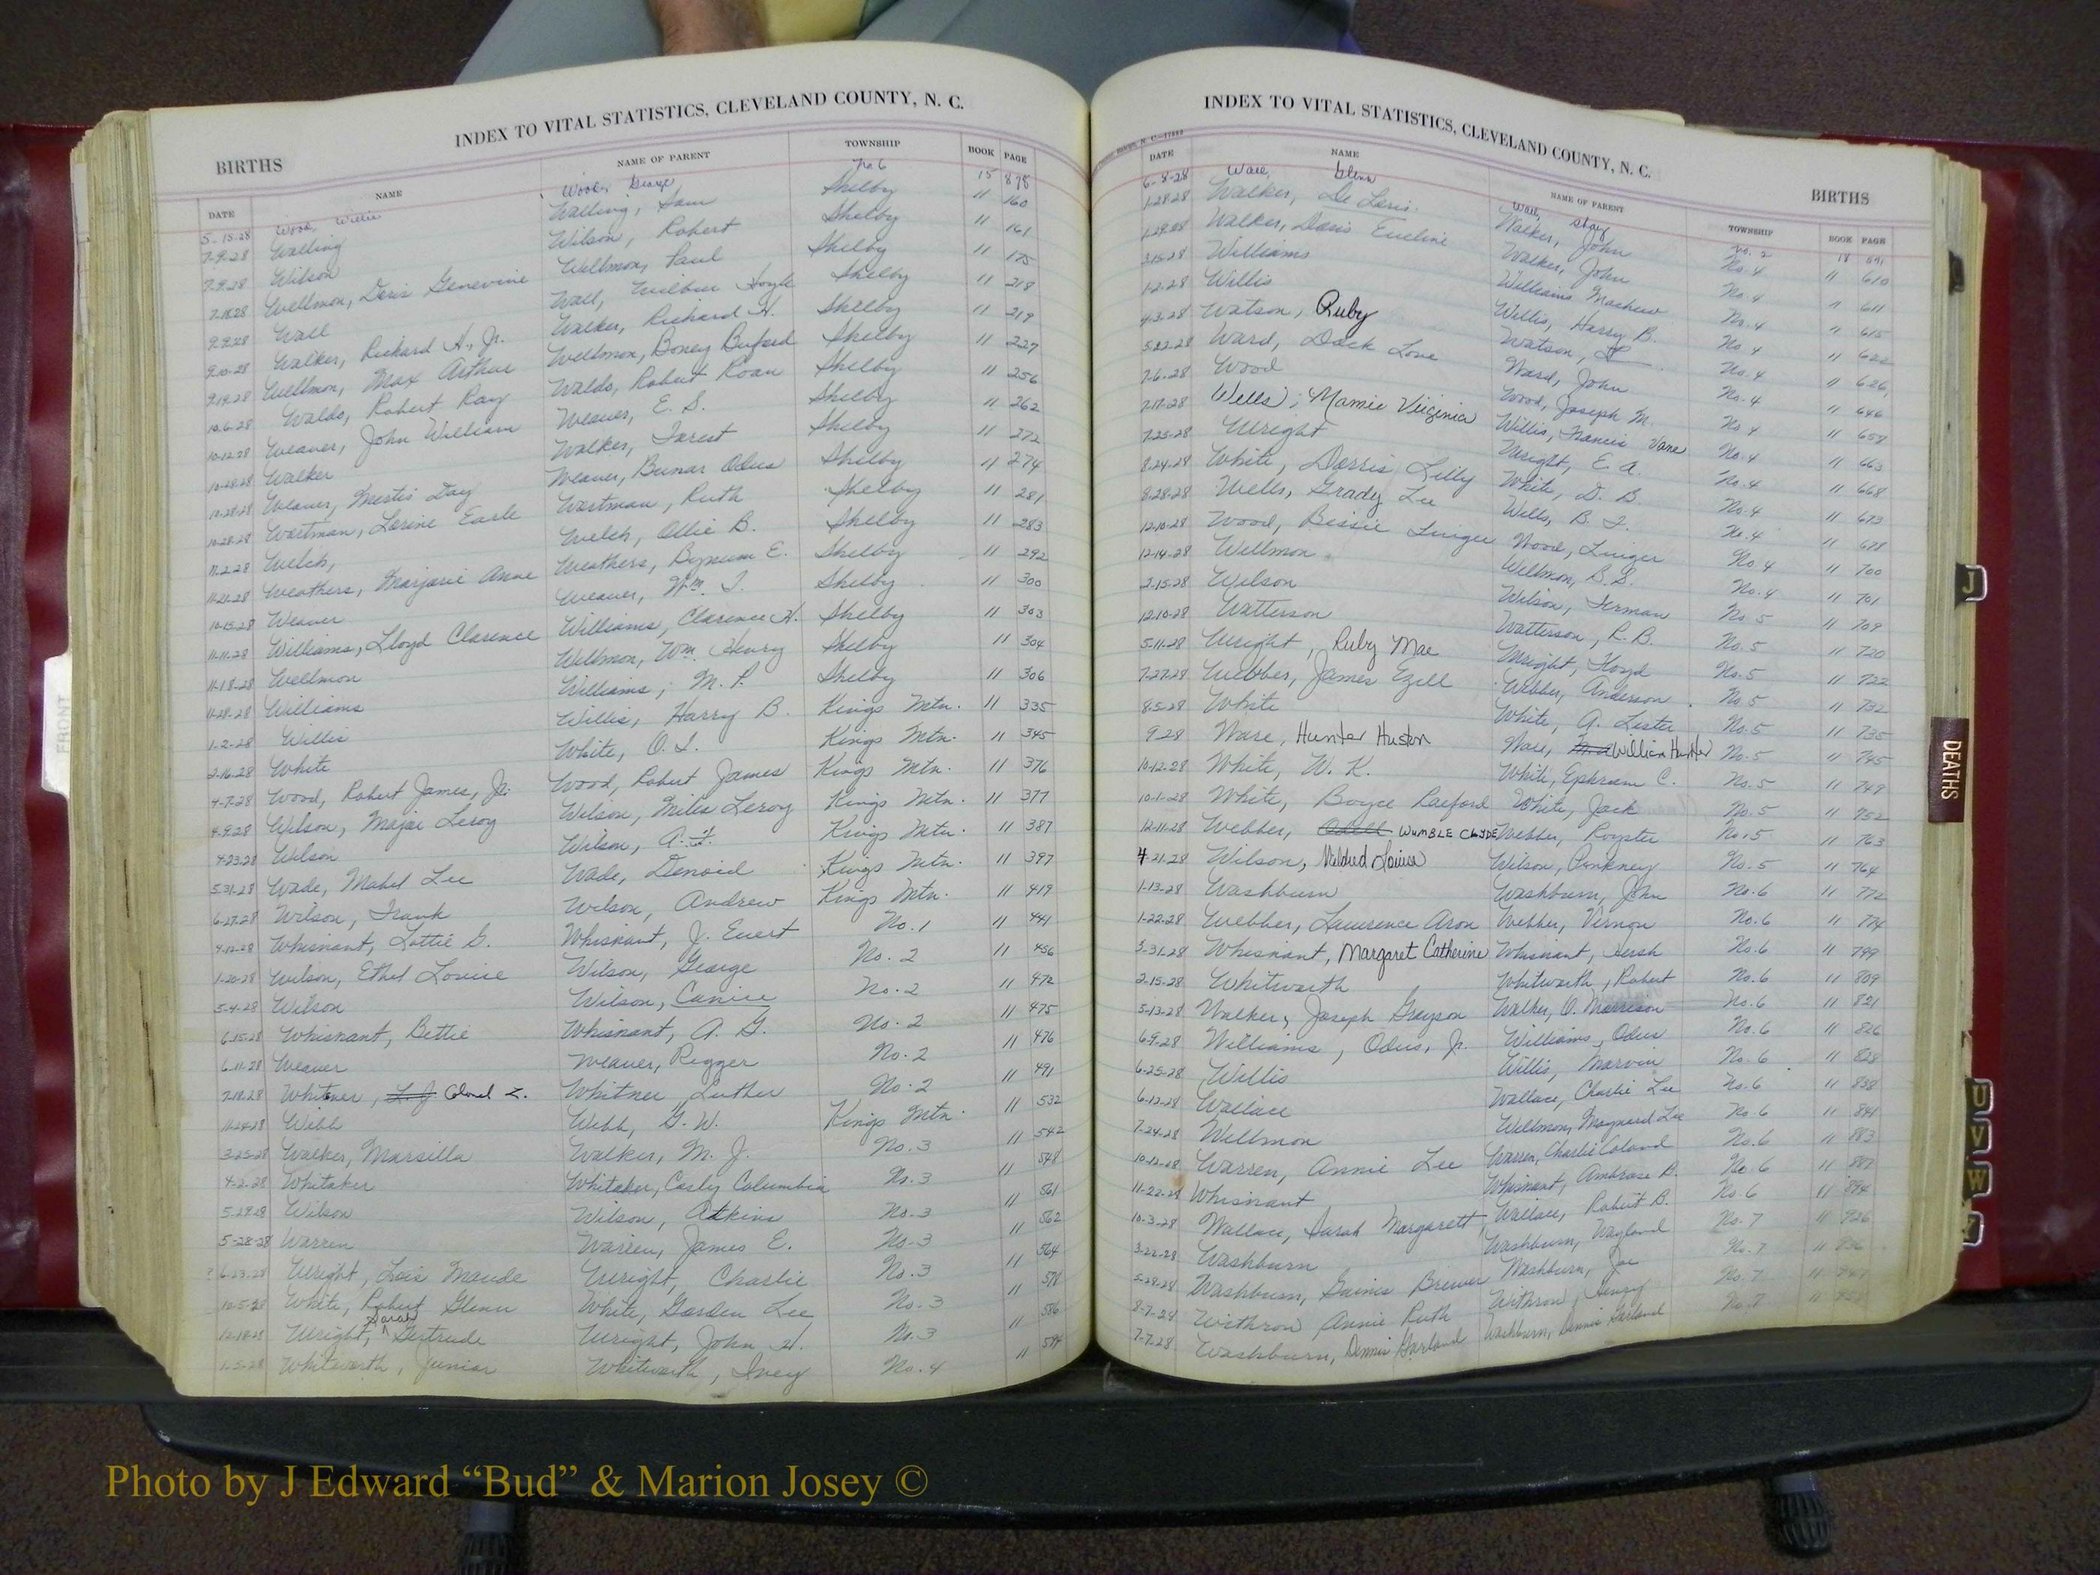 INDEX TO VITAL STATISTICS, CLEVELAND COUNTY, N. C.
BIRTHS
DATE NAME NAME OF PARENT TOWNSHIP BOOK PAGE
5-15-28 Wood, Willie Wood, George No 6 15 878
7-9-28 Walling Walling, Sam Shelby 11 160
7-9-28 Wilson Wilson, Robert Shelby 11 161
7-18-28 Wellmon, Doris Genevine Wellmon, Paul Shelby 11 175
9-9-28 Wall Wall, Wilbur Hoyle Shelby 11 218
9-10-28 Walker, Richard H., Jr. Walker, Richard H. Shelby 11 219
9-19-28 Wellmon, Max Arthur Wellmon, Boney Buford Shelby 11 227
10-6-28 Waldo, Robert Ray Waldo, Robert Roan Shelby 11 256
10-12-28 Weaver, John William Weaver, E. S. Shelby 11 262
10-28-28 Walker Walker, Forest Shelby 11 272
10-28-28 Weaver, Day Weaver, Odus Shelby 11 274
10-28-28 Wortman, Lorine Earle Wortman, Ruth Shelby 11 281
11-2-28 Welch, Welch, Ollie B. Shelby 11 283
11-21-28 Weathers, Marjorie Anne Weathers, Bynum E. Shelby 11 292
10-15-28 Weaver Weaver, Wm. T. Shelby 11 300
11-11-28 Williams, Lloyd Clarence Williams, Clarence H. Shelby 11 303
11-18-28 Wellmon Wellmon, Wm. Henry Shelby 11 304
11-28-28 Williams Williams, M. P. Shelby 11 306
1-2-28 Willis Willis, Harry B. Kings Mtn. 11 335
2-16-28 White White, O. S. Kings Mtn. 11 345
4-7-28 Wood, Robert James, Jr. Wood, Robert James Kings Mtn. 11 376
4-9-28 Wilson, Major Leroy Wilson, Miles Leroy Kings Mtn. 11 377
4-23-28 Wilson Wilson, A. Kings Mtn. 11 387
5-31-28 Wade, Mabel Lee Wade, Denoid Kings Mtn. 11 397
6-27-28 Wilson, Frank Wilson, Andrew Kings Mtn. 11 419
4-12-28 Whisnant, Lottie G. Whisnant, J. Evert No. 1 11 441
1-20-28 Wilson, Ethel Louise Wilson, George No. 2 11 456
5-4-28 Wilson Wilson, Canice No. 2 11 472
6-15-28 Whisnant, Bettie Whisnant, A. G. No. 2 11 475
6-11-28 Weaver Weaver, Rigger No. 2 11 476
7-18-28 Whitener, L. J. Colonel L. Whitner, Luther No. 2 11 491
11-24-28 Webb Webb, G. W. Kings Mtn. 11 532
3-25-28 Walker, Marsilla Walker, M. J. No. 3 11 542
4-2-28 Whitaker Whitaker, Casly Columbia No. 3 11 548
5-29-28 Wilson Wilson, Atkins No. 3 11 561
5-28-28 Warren Warren, James E. No. 3 11 562
6-23-28 Wright, Lois Maude Wright, Charlie No. 3 11 564
10-5-28 White, Robert Glenn White, Garden Lee No. 3 11 578
12-18-28 Wright, Sarah Gertrude Wright, John H. No. 3 11 586
1-5-28 Whitworth, Junior Whitworth, Ivey No. 4 11 594
INDEX TO VITAL STATISTICS, CLEVELAND COUNTY, N. C.
BIRTHS
DATE NAME NAME OF PARENT TOWNSHIP BOOK PAGE
6-8-28 Wall, Glenn Wall, No. 2 18
1-28-28 Walker, De Loris Walker, John No. 4 11 610
1-28-28 Walker, Doris Eveline Walker, John No. 4 11 611
3-15-28 Williams Williams, Machew No. 4 11 615
1-2-28 Willis Willis, Harry B. No. 4 11 622
4-3-28 Watson, Ruby Watson, No. 4 11 626
5-22-28 Ward, Dock Love Ward, John No. 4 11 646
7-6-28 Wood Wood, Joseph M. No. 4 11 658
7-17-28 Wells, Mamie Virginia Willis, Francis Vane No. 4 11 663
7-25-28 Wright Wright, E. A. No. 4 11 668
8-24-28 White, Dorris Lilly White, D. B. No. 4 11 673
8-28-28 Wells, Grady Lee Wells, B. F. No. 4 11 678
12-10-28 Wood, Bessie Linger Wood, Linger No. 4 11 700
12-14-28 Wellmon Wellmon, B. S. No. 4 11 701
2-15-28 Wilson Wilson, Ferman No. 5 11 709
12-10-28 Watterson Watterson, R. B. No. 5 11 720
5-11-28 Wright, Ruby Mae Wright, Floyd No. 5 11 722
7-27-28 Webber, James Ezell Webber, Anderson No. 5 11 732
8-5-28 White White, A. Lester No. 5 11 735
9-28 Ware, Hunter Huston Ware, William Hunter No. 5 11 745
10-12-28 White, W. K. White, Ephriam C. No. 5 11 748
10-1-28 White, Boyce Raeford White, Jack No. 5 11 752
12-11-28 Webber, Odell WUMBLE CLYDE Webber, Royster No. 5 11 763
4-21-28 Wilson, Mildred Louise Wilson, Pinkney No. 5 11 764
1-13-28 Washburn Washburn, John No. 6 11 772
1-22-28 Webber, Lawrence Aron Webber, Vernon No. 6 11 774
3-31-28 Whisnant, Margaret Catherine Whisnant, Hersh No. 6 11 799
2-15-28 Whitworth Whitworth, Robert No. 6 11 809
5-13-28 Walker, Joseph Grayson Walker, O. Morrison No. 6 11 821
6-9-28 Williams, Odus, Jr. Williams, Odus No. 6 11 826
6-25-28 Willis Willis, Marvin No. 6 11 828
6-12-28 Wallace Wallace, Charlie Lee No. 6 11 838
7-24-28 Wellmon Wellmon, Maynard Lee No. 6 11 841
10-12-28 Warren, Annie Lee Warren, Charlie Coland No. 6 11 883
11-22-28 Whisnant Whisnant, Ambrose B. No. 6 11 887
10-3-28 Wallace, Sarah Margarett Wallace, Robert B. No. 6 11 894
3-22-28 Washburn Washburn, Wayland No. 7 11 926
5-28-28 Washburn, Gaines Brewer Washburn, Joe No. 7 11
8-7-28 Withrow Annie Ruth Withrow, Henry No. 7 11
7-7-28 Washburn, Dennis Garland Washburn, Dennis Garland No. 7 11
FRONT
J
DEATHS
U
V
W
Photo by J Edward “Bud” & Marion Josey ©